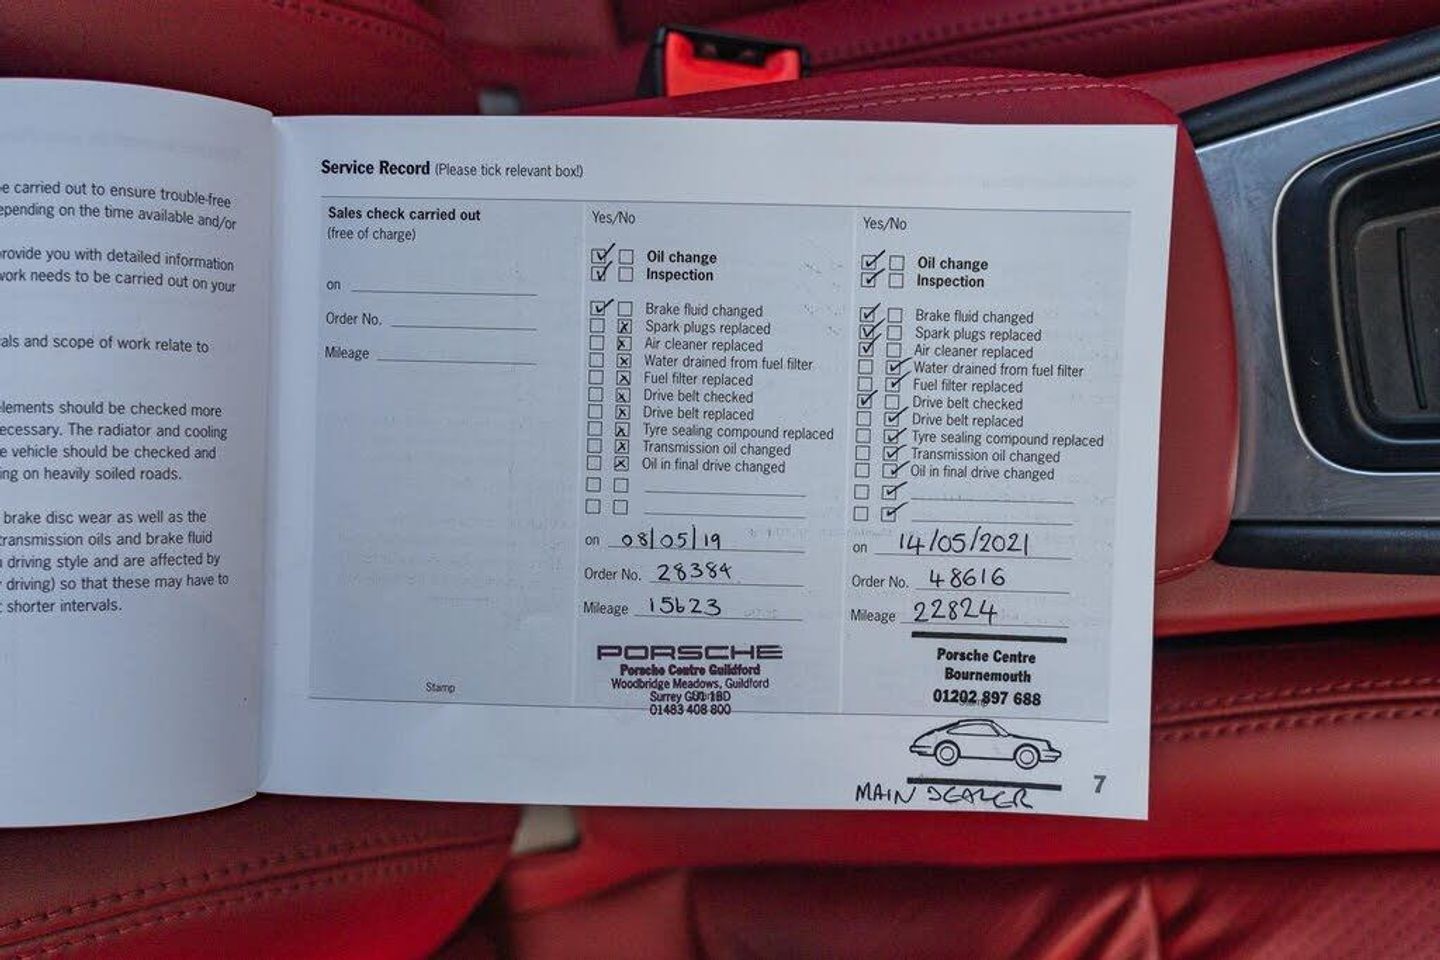 e carried out to ensure trouble-free
epending on the time available and/or
rovide you with detailed information
work needs to be carried out on your
als and scope of work relate to
lements should be checked more
ecessary. The radiator and cooling
e vehicle should be checked and
ing on heavily soiled roads.
brake disc wear as well as the
transmission oils and brake fluid
driving style and are affected by
driving) so that these may have to
shorter intervals.
Service Record (Please tick relevant box!)
Sales check carried out
(free of charge)
on
Order No.
Mileage
Stamp
Yes/No
Oil change
Inspection
Brake fluid changed
Spark plugs replaced
Air cleaner replaced
Water drained from fuel filter
Fuel filter replaced
Drive belt checked
Drive belt replaced
Tyre sealing compound replaced
Transmission oil changed
Oil in final drive changed
on 08/05/19
Order No. 28384
Mileage 15623
PORSCHE
Porsche Centre Guildford
Woodbridge Meadows, Guildford
Surrey GU1 1BD
01483 408 800
Yes/No
Oil change
Inspection
Brake fluid changed
Spark plugs replaced
Air cleaner replaced
Water drained from fuel filter
Fuel filter replaced
Drive belt checked
Drive belt replaced
Tyre sealing compound replaced
Transmission oil changed
Oil in final drive changed
on 14/05/2021
Order No. 48616
Mileage 22824
Porsche Centre
Bournemouth
01202 897 688
MAIN DEALER
7